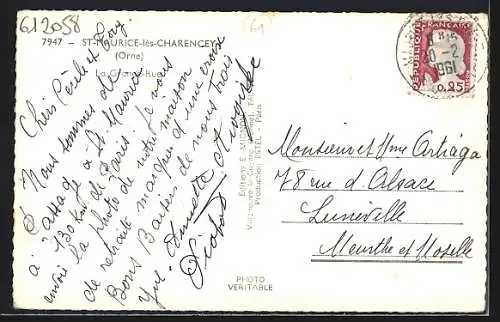 612058
7947 - ST-MAURICE-lès-CHARENCEY
(Orne)
La Grande-Rue
Chers Cécile et
Nous sommes de
passage à St Maurice
à 130 Kms de Paris. Je vous
envoi la photo de notre maison
de retraite marquée d'une croix
Bons Baisers de nous trois
Yve - Annette Auguste
Editions E. MIGNON
Production ESTEL - Paris
PHOTO
VÉRITABLE
RÉPUBLIQUE FRANÇAISE
0,25
-2
1961
Monsieur et Mme Artiaga
78 rue d'Alsace
Luneville
Meurthe et Moselle